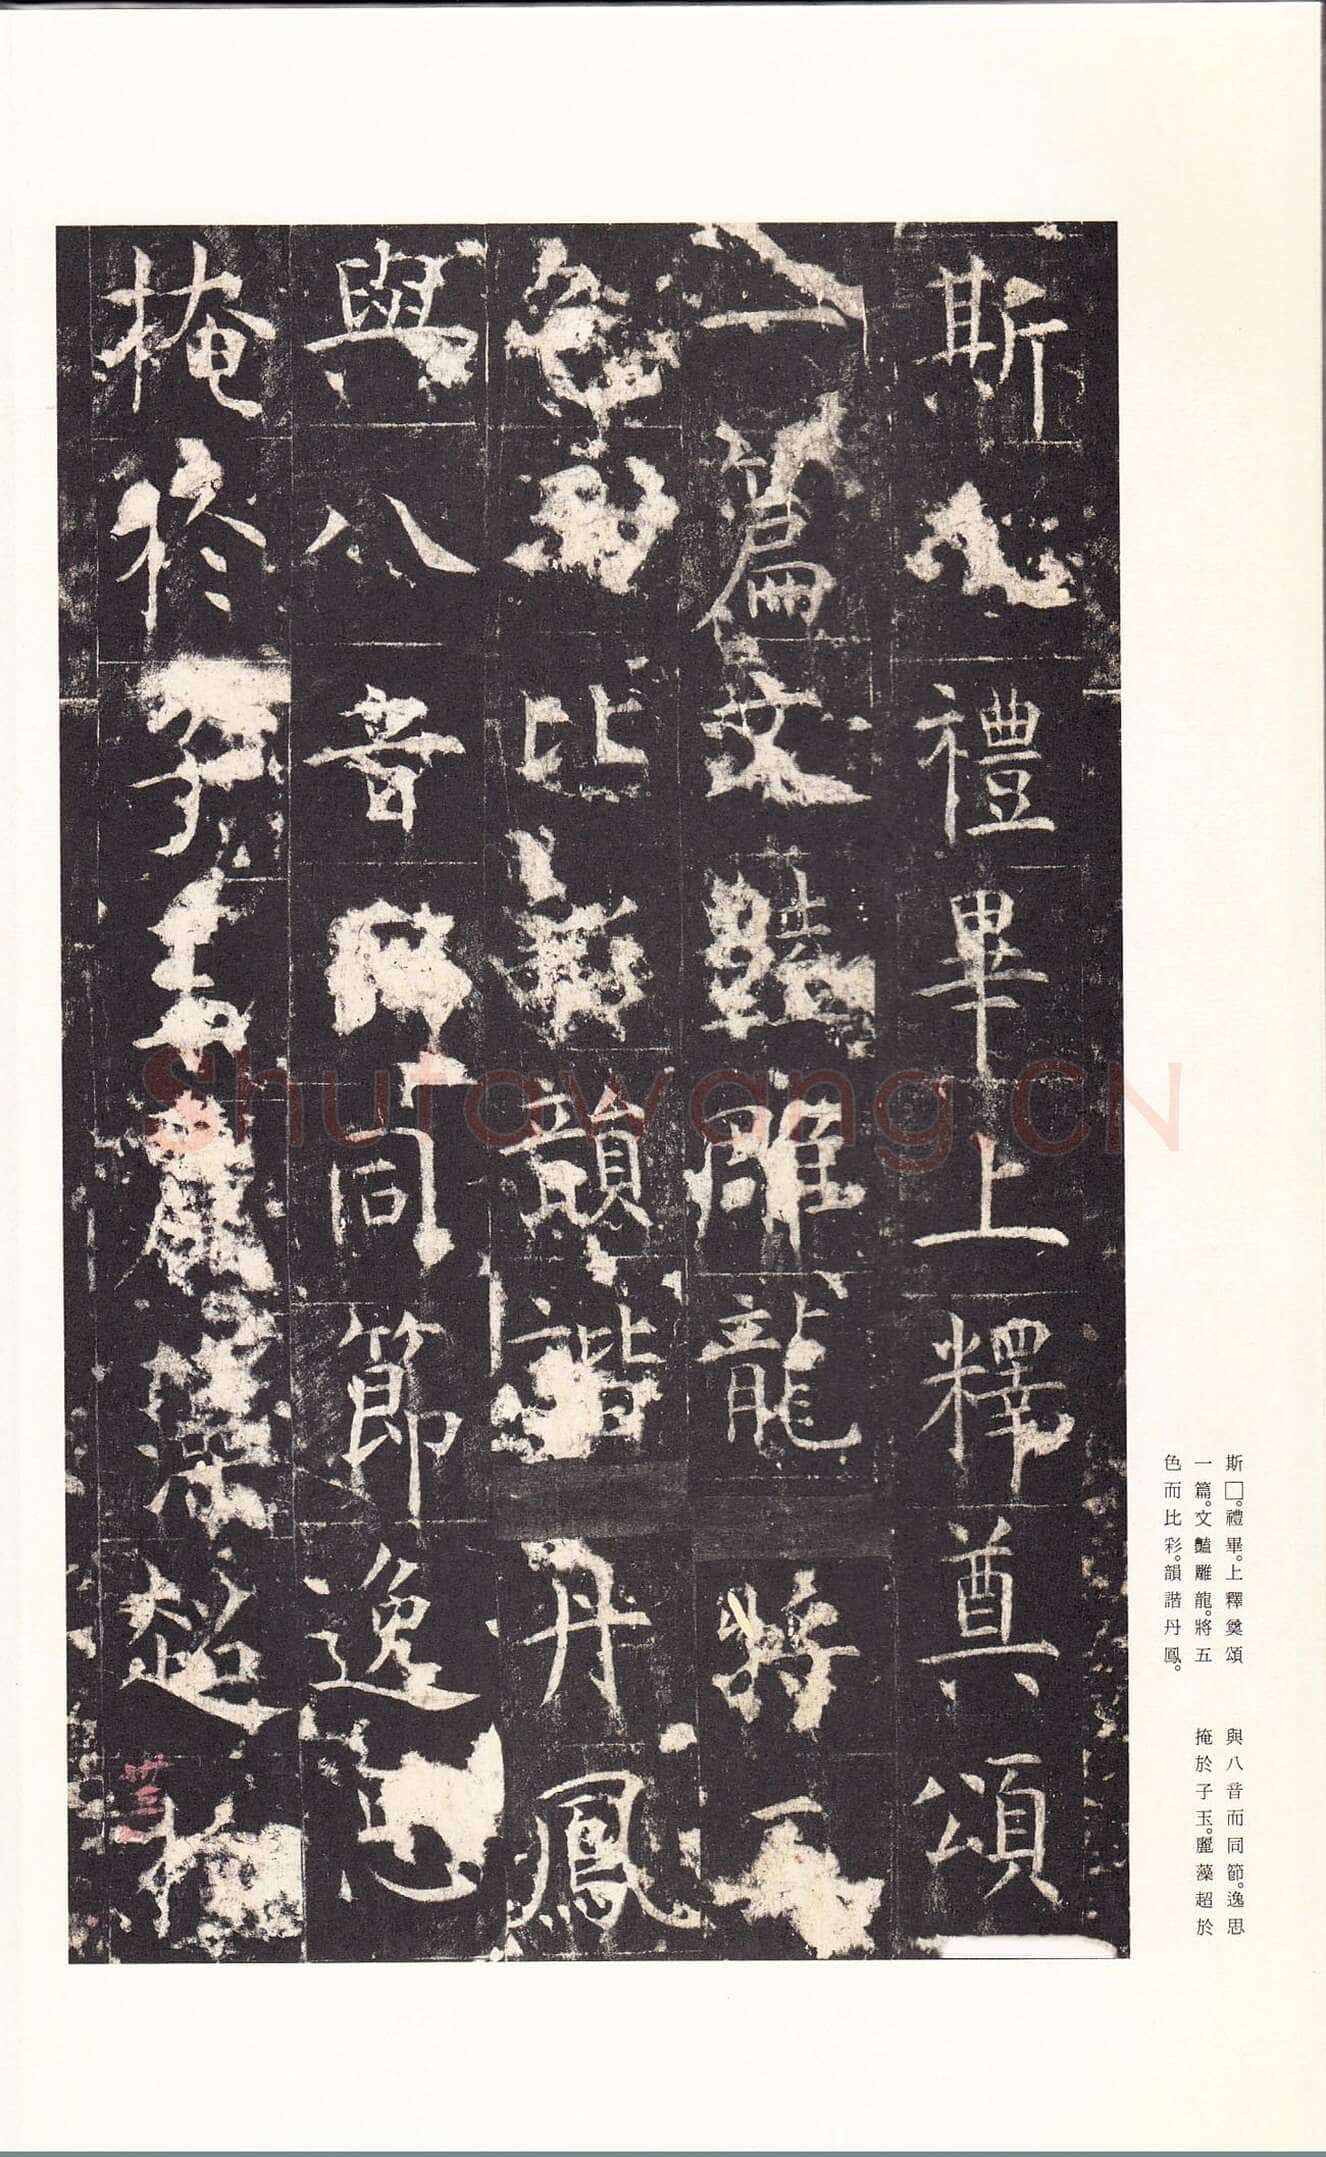 斯禮畢上釋奠頌
一篇文豔雕龍將五
色而比彩韻諧丹鳳
與八音而同節逸思
掩於子玉麗藻超於
卅三
斯□。禮畢。上釋奠頌
一篇。文豔雕龍。將五
色而比彩。韻諧丹鳳。
與八音而同節。逸思
掩於子玉。麗藻超於
Shutawang.CN